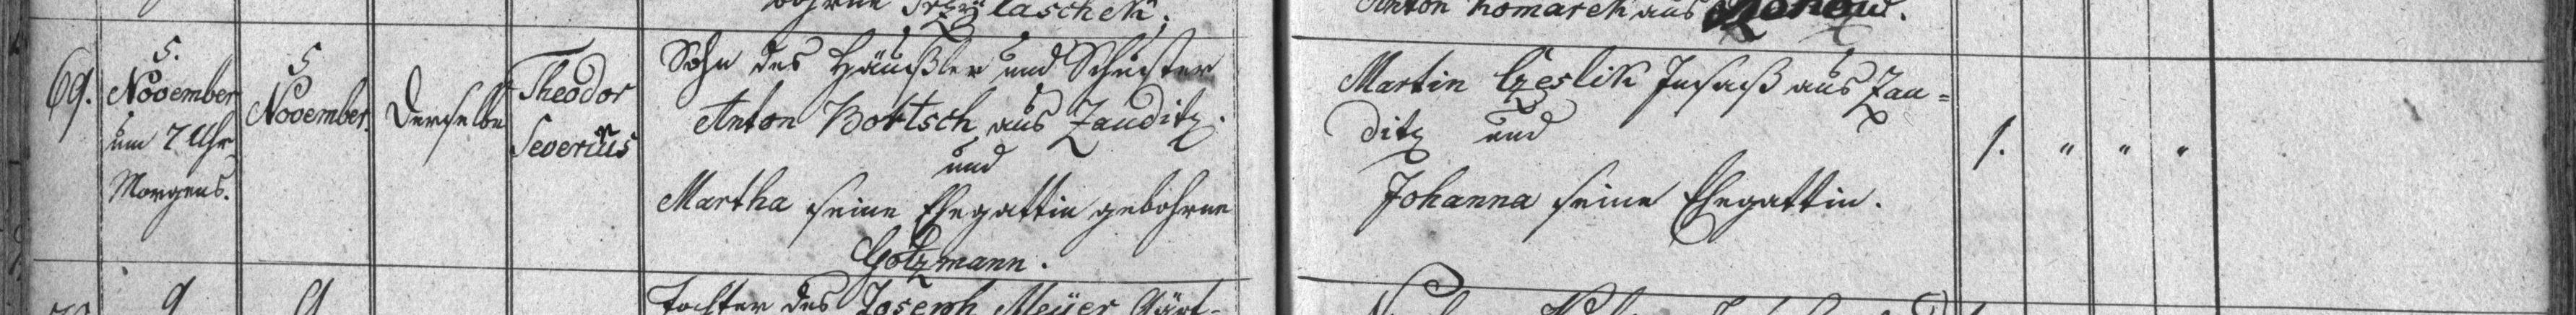 Anton Komarek aus
69.
5.
November
um 7 Uhr
Morgens.
5
November.
Derselbe
Theodor
Severius
Sohn des Häußler und Schuster
Anton Bortsch aus Zauditz.
und
Martha seine Ehegattin gebohrne
Gotzmann.
Martin Czeslik Insaß aus Zau=
ditz und
Johanna seine Ehegattin.
1. " " "
9
9
Tochter des Joseph Meÿer Gärt-